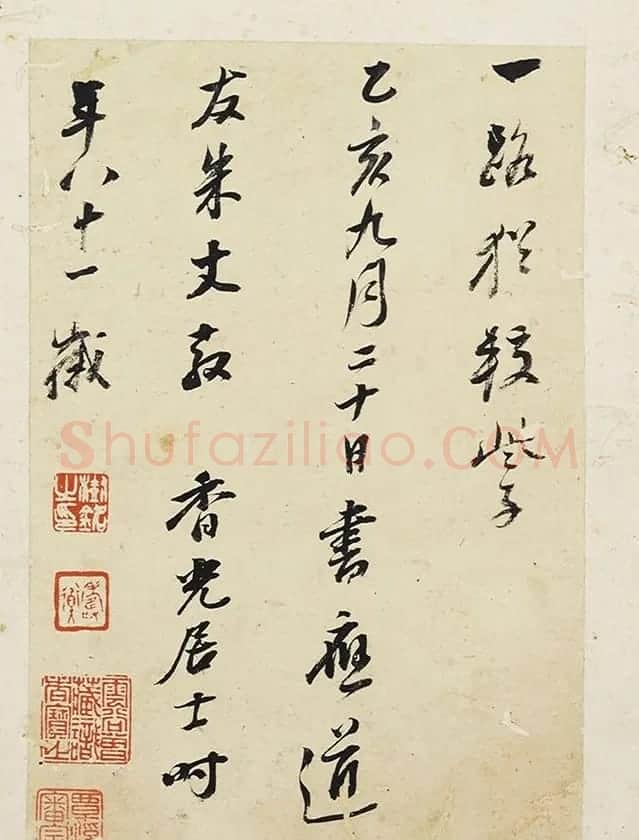 一路猶較些子
乙亥九月二十日書應道
友朱丈教 香光居士时
年八十一歲
樹銘之印
壽蘅
Shufaziliao.COM